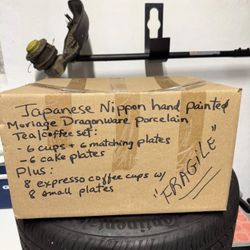 Japanese Nippon hand painted
Moriage Dragonware porcelain
Tea/coffee set:
- 6 cups + 6 matching plates
- 6 cake plates
Plus:
8 expresso coffee cups w/
8 small plates
"FRAGILE"